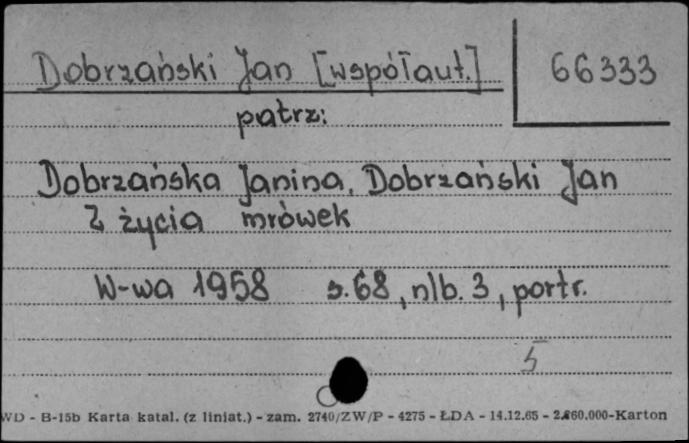 Dobrzański Jan [współaut.] 66333
patrz:
Dobrzańska Janina, Dobrzański Jan
Z życia mrówek
W-wa 1958 s. 68, nlb. 3, portr.
5
WD - B-15b Karta katal. (z liniat.) - zam. 2740/ZW/P - 4275 - ŁDA - 14.12.65 - 2.860.000-Karton